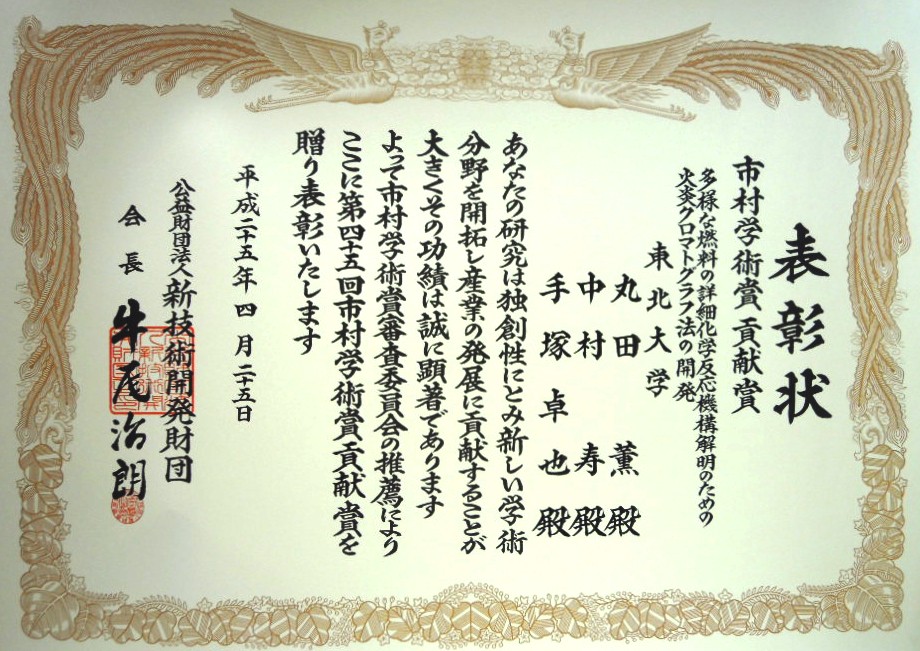 表彰状
市村学術賞貢献賞
多様な燃料の詳細化学反応機構解明のための
火炎クロマトグラフ法の開発
東北大学
丸田 薫 殿
中村 寿 殿
手塚卓也 殿
あなたの研究は独創性にとみ新しい学術
分野を開拓し産業の発展に貢献することが
大きくその功績は誠に顕著であります
よって市村学術賞審査委員会の推薦により
ここに第四十五回市村学術賞貢献賞を
贈り表彰いたします
平成二十五年四月二十五日
公益財団法人新技術開発財団
会長 牛尾治朗